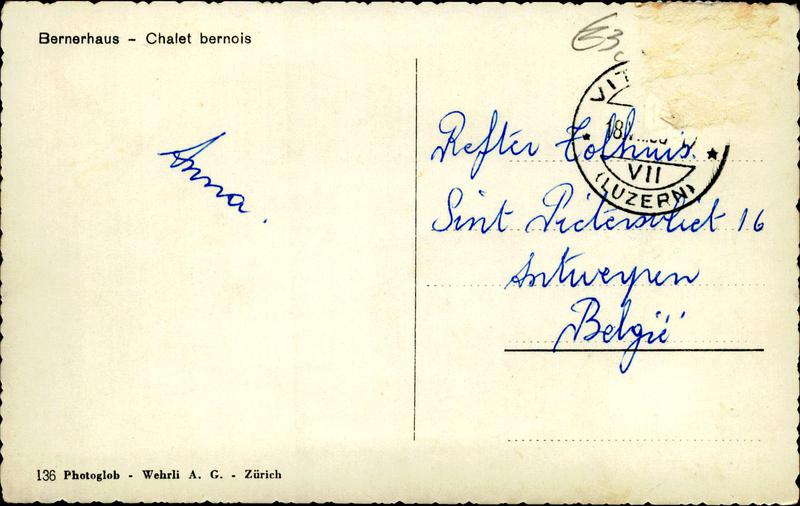 Bernerhaus - Chalet bernois
VIT
18.
VII
(LUZERN)
Anna.
Refter Tolhuis.
Sint Pietersvliet 16
Antwerpen
België
136 Photoglob - Wehrli A. G. - Zürich